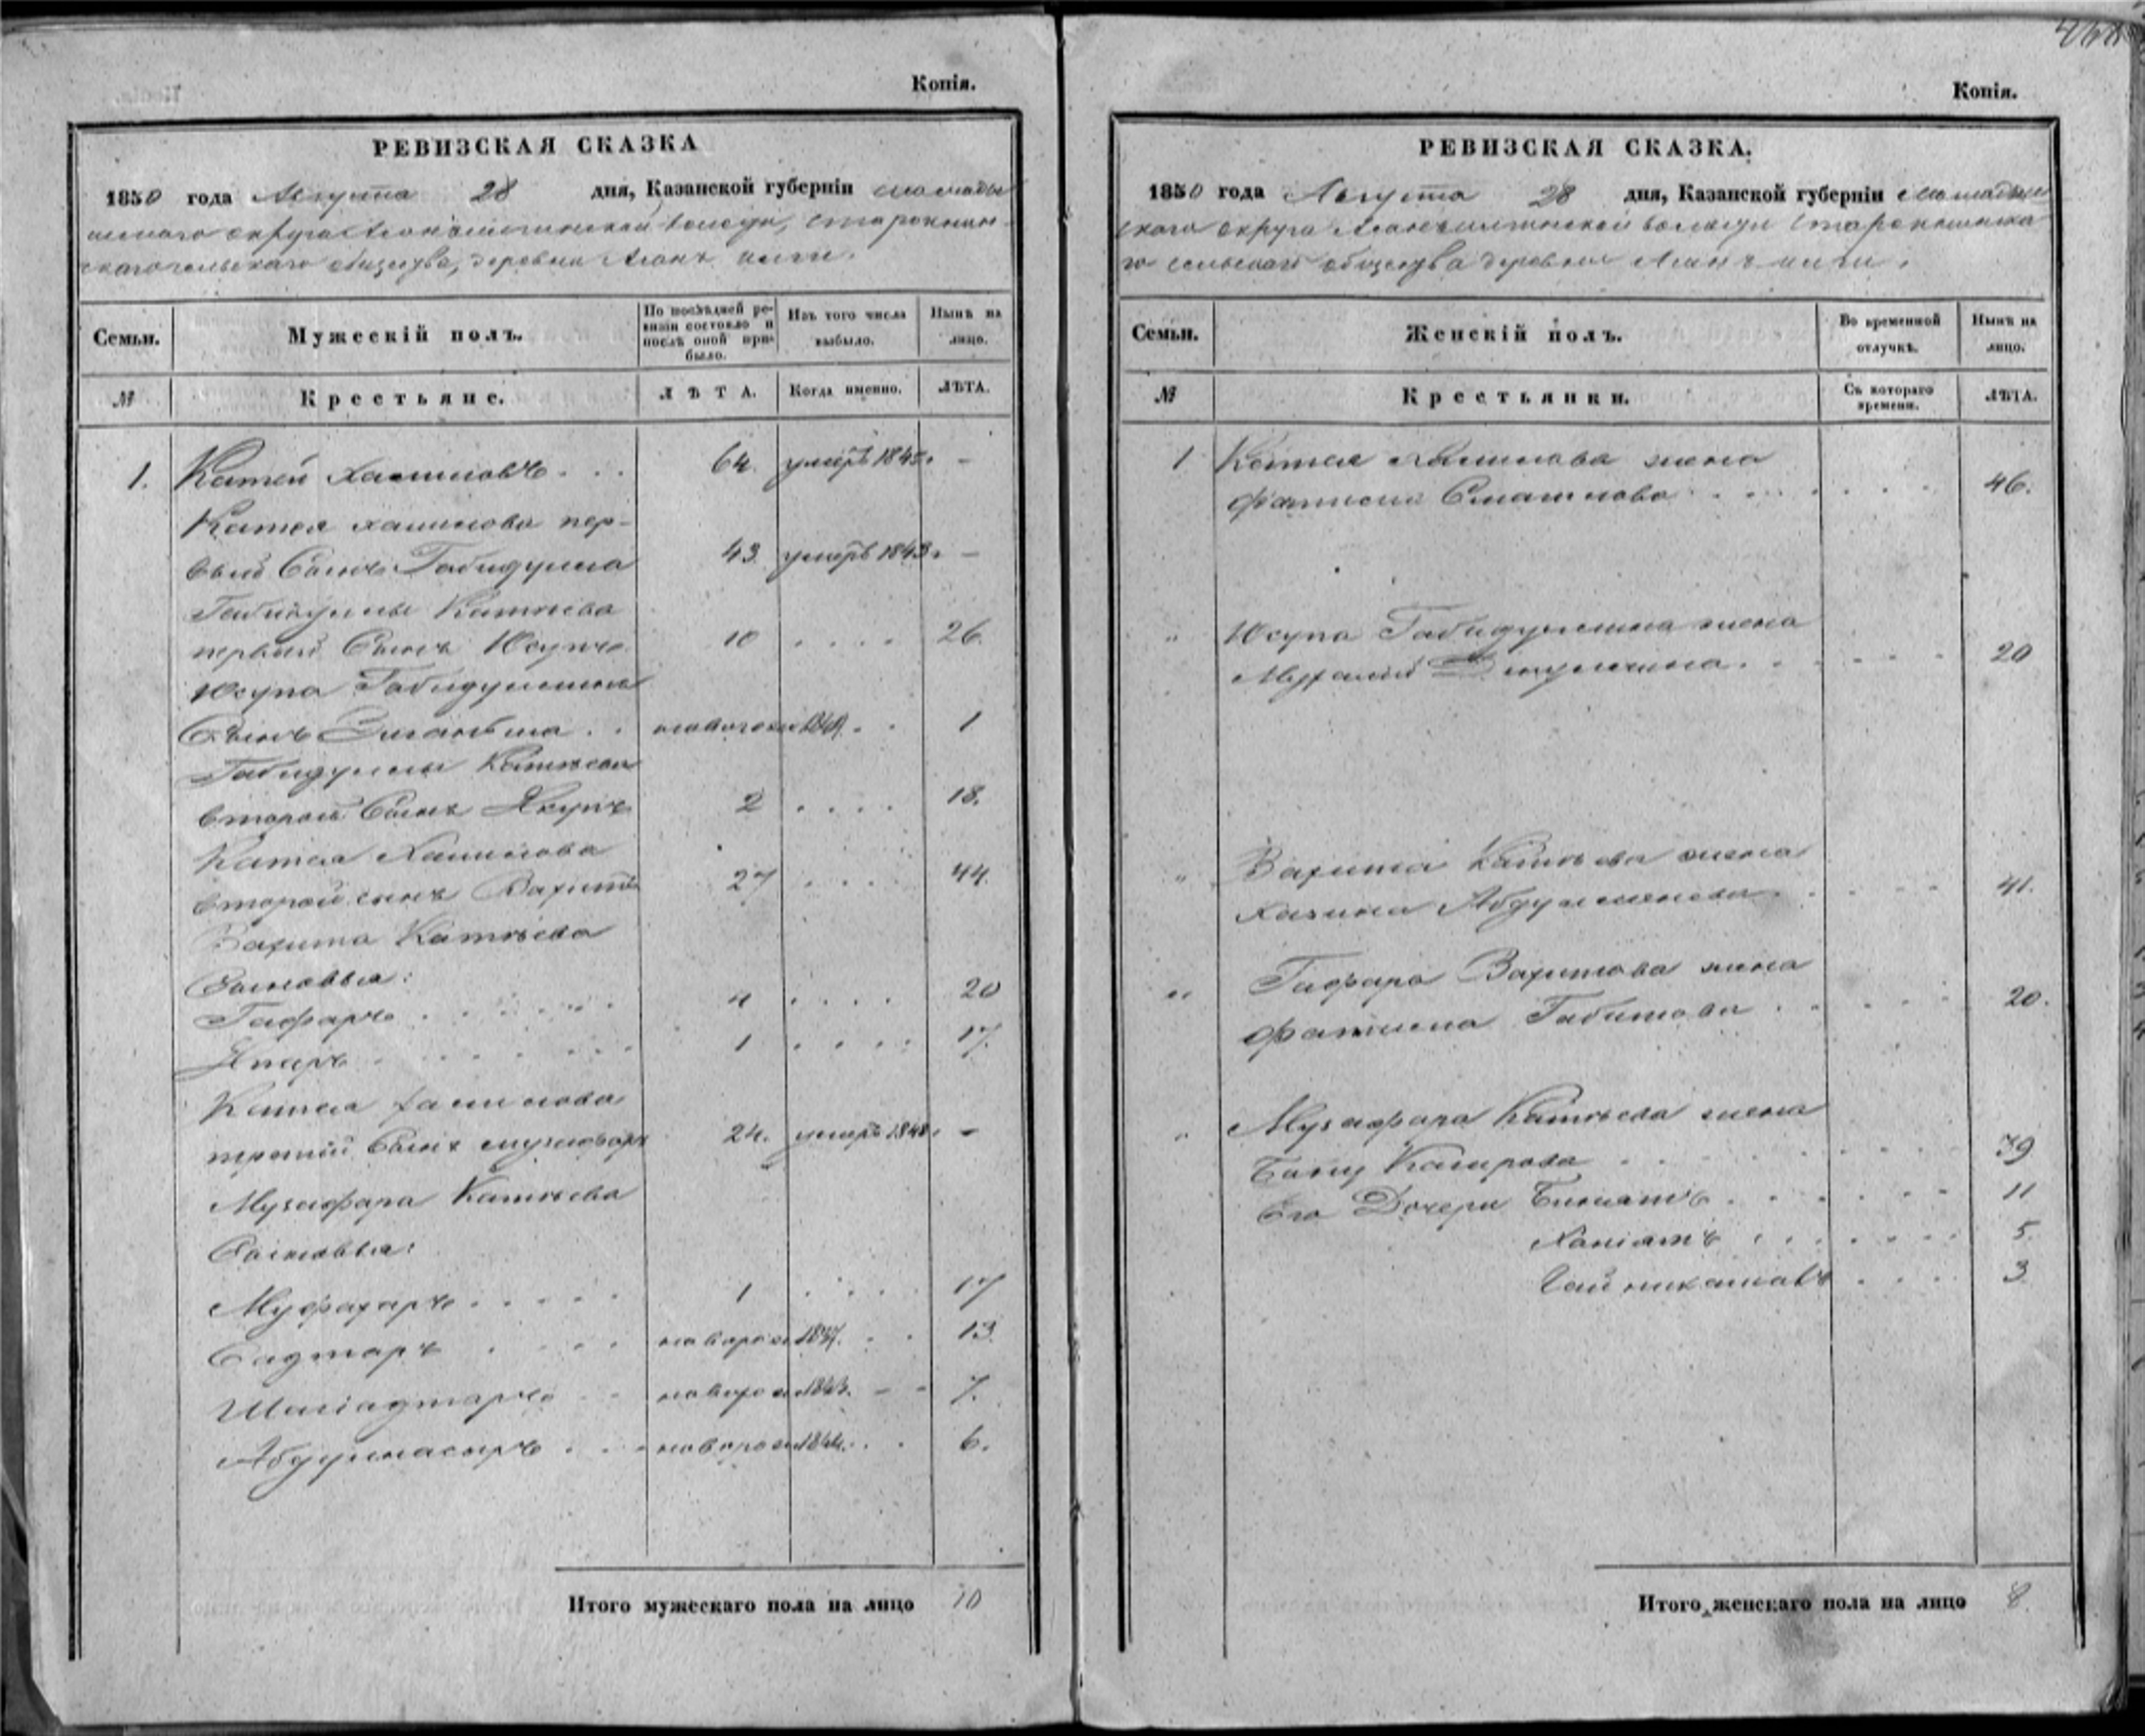 Копія.
РЕВИЗСКАЯ СКАЗКА
1850 года Августа 28 дня, Казанской губерніи мамады
шскаго округа волости,
общества, деревни
Семьи.
Мужескій полъ.
По послѣдней ре-
визіи состояло и
послѣ оной при-
было.
Изъ того числа
выбыло.
Нынѣ на
лицо.
№
Крестьяне.
ЛѢТА.
Когда именно.
ЛѢТА.
1. Катей Халиловъ . . . 64. умеръ 184 -
Катея халилова пер-
вый Сынъ Габидулла 43 умеръ 1843. -
Габидуллы Катѣева
первый Сынъ Юсупъ 10 . . . . 26.
Юсупа Габидуллина
Сынъ . . новорож 1849. . . 1
Габидуллы Катѣева
второй Сынъ Якупъ 2 . . . . 18.
Катея Халилова
второй сынъ Вахитъ 27 . . . . 44.
Вахита Катѣева
Сыновья:
Гафаръ . . . . . . 4 . . . . 20
Япаръ . . . . . . 1 . . . . 17.
Катея халилова
третій Сынъ музафаръ 24. умеръ 1848. -
Музафара Катѣева
Сыновья:
Муфахаръ . . . . . 1 . . . . 17
Садтаръ . . . . новорож 1837. . . 13.
Шагіадтаръ . . новорож 1843. - - 7.
Абдулнасыръ . . . новорож 1844. . . 6.
Итого мужескаго пола на лицо 10
Копія.
РЕВИЗСКАЯ СКАЗКА.
1850 года Августа 28 дня, Казанской губерніи мамадыш
скаго округа волости
го сельскаго общества деревни
Семьи.
Женскій полъ.
Во временной
отлучкѣ.
Нынѣ на
лицо.
№
Крестьянки.
Съ котораго
времени.
ЛѢТА.
1 Катея Халилова жена
Смаилова . . . . . . 46.
" Юсупа Габидуллина жена
. . . . . 20
" Вахита Катѣева жена
. . . . 41.
" Гафара Вахитова жена
Габитова . . . . 20.
" Музафара Катѣева жена
Бану . . . . . . . 39
Его Дочери . . . . . . 11
Ханіатъ . . . . . . . 5.
. . . . 3
Итого женскаго пола на лицо 8.